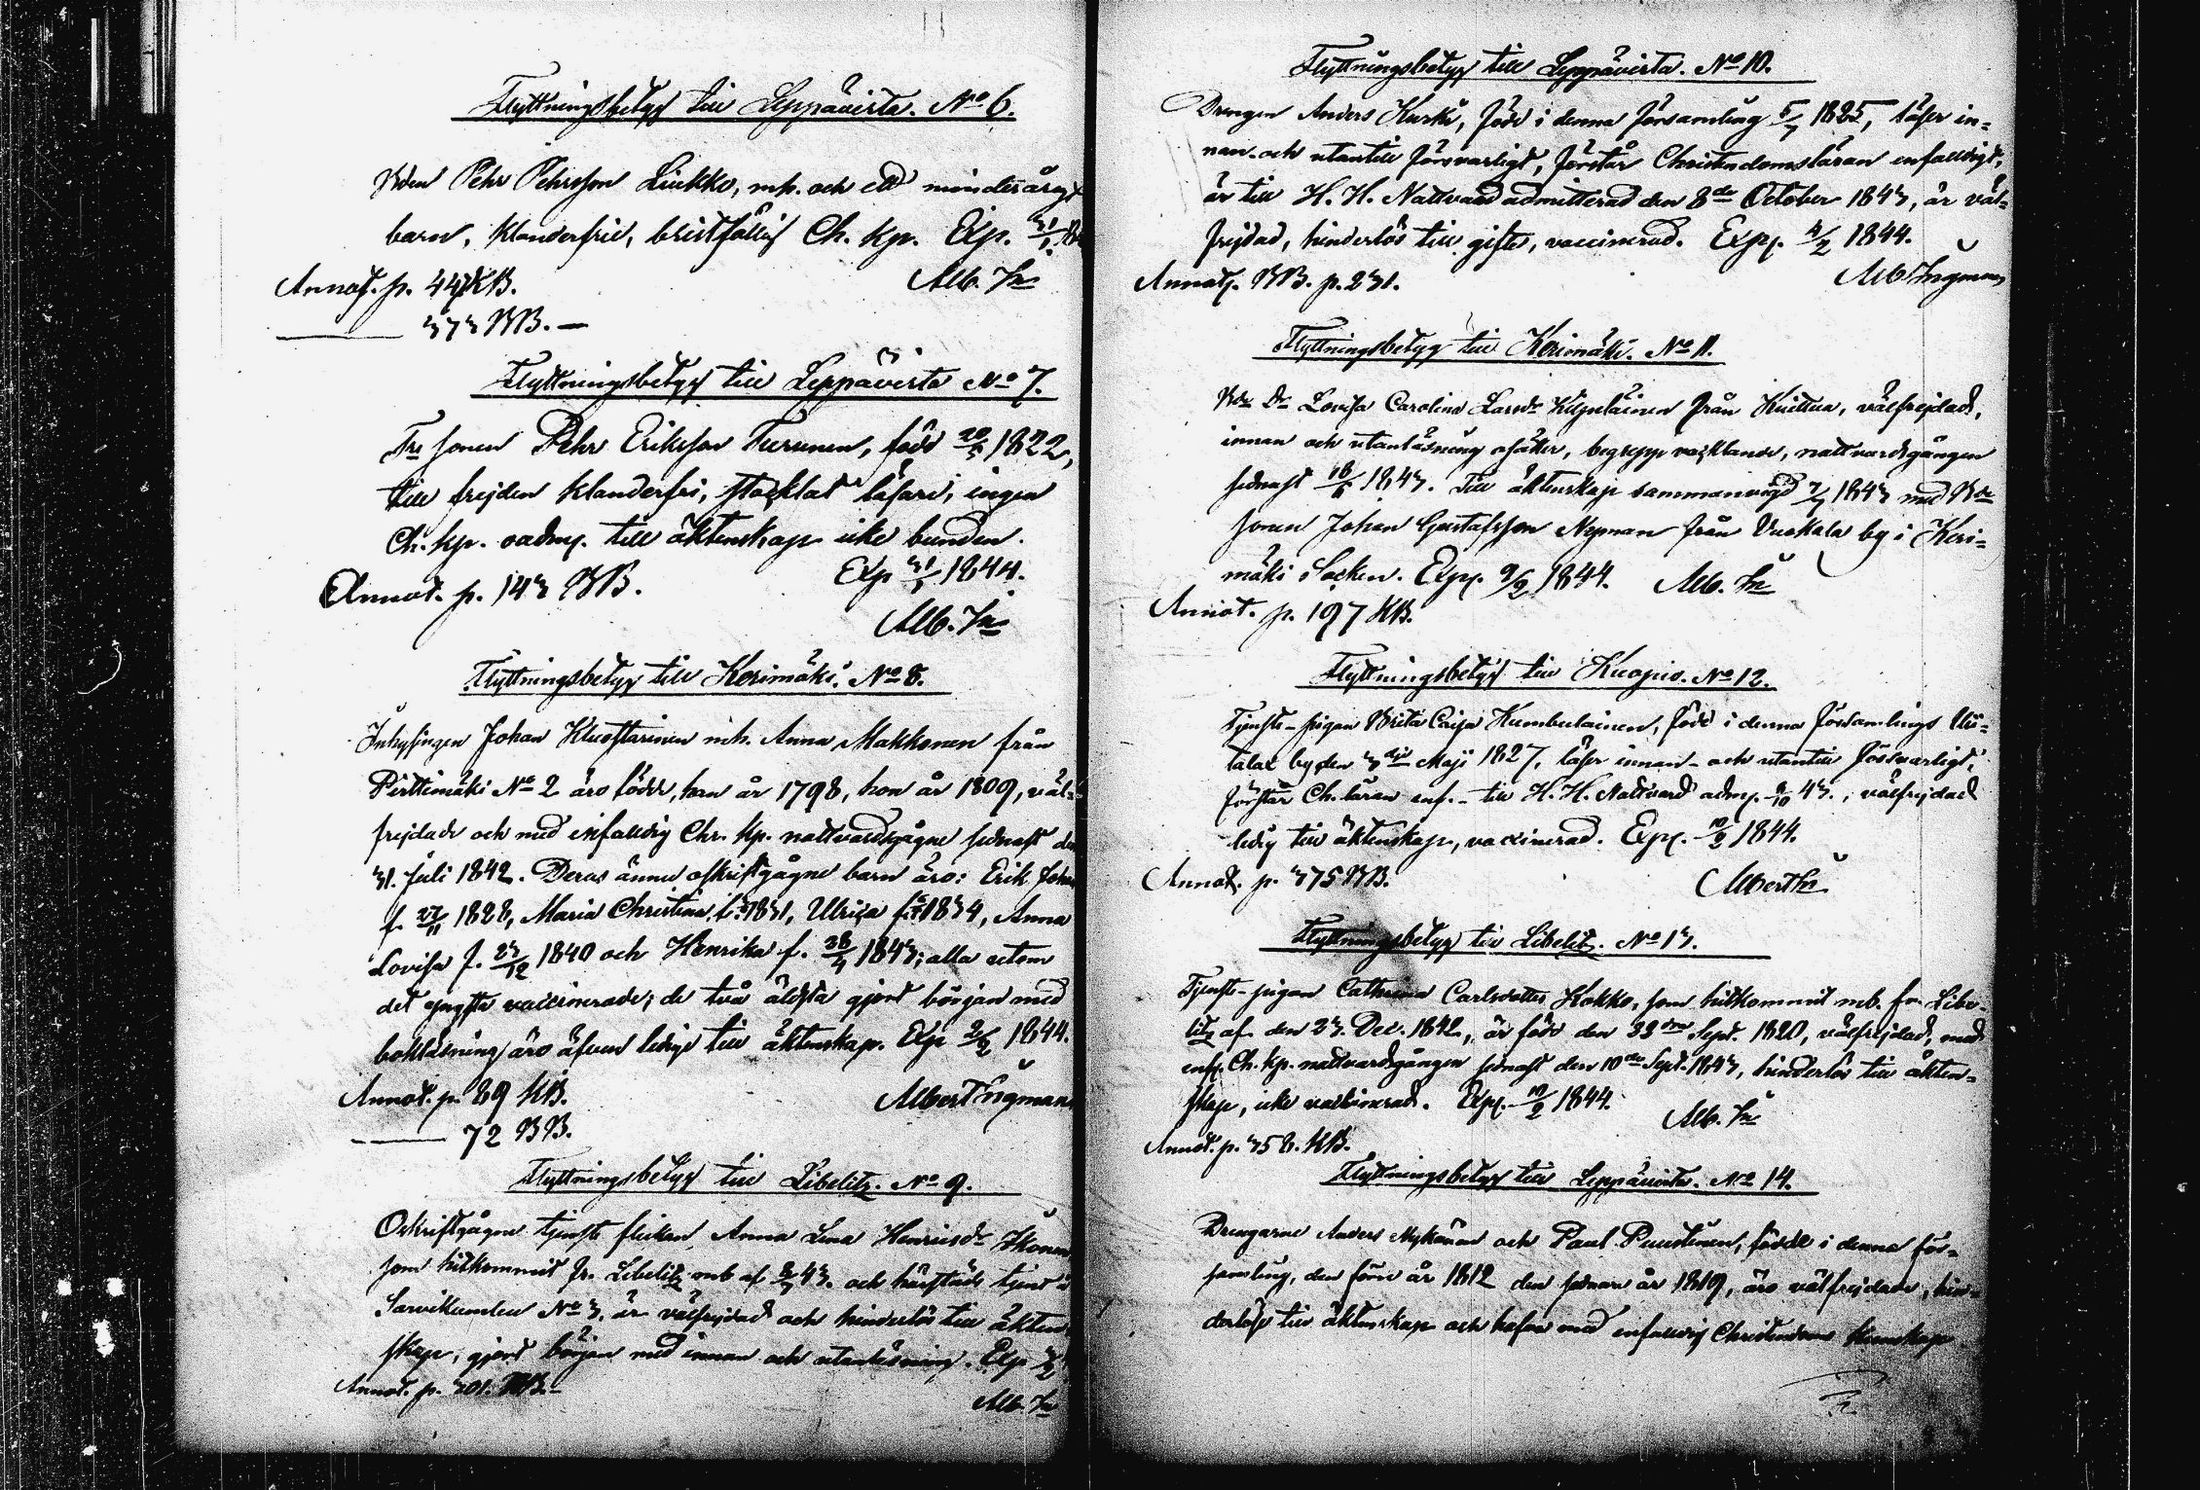 Flyttningsbetyg till Leppävirta. No 6.
Pehr Pehrsson Liukko, mh. och ett minderårigt
barn, klanderfrie, bristfällig Ch. kp. Exp. 31/1
Alb. In
Annot. p. 447 KB.
373 BB. —
Flyttningsbetyg till Leppävirta No 7.
sonen Pehr Eriksson Turunen, född 1822,
till frejden klanderfri, läsare, ingen
Ch. kp. till äktenskap icke bunden.
Exp 31/1 1844.
Annot. p. 143 BB.
Alb. In
Flyttningsbetyg till Kerimäki. No 8.
Inhysingen Johan mh. Anna Makkonen från
Pirttimäki No 2 äro födde, han år 1798, hon år 1809, väl-
frejdade och med enfaldig Chr. kp. nattvardsgågne sednast den
31. Juli 1842. Deras ännu oskriftgågne barn äro: Erik Johan
f. 27/11 1828, Maria Christina, f. 1831, Ulrica f. 1834, Anna
Lovisa f. 23/12 1840 och Henrika f. 28/4 1843; alla utom
det yngsta vaccinerade; de två äldsta gjort början med
bokläsning, äro äfven ledige till äktenskap. Exp 2/2 1844.
Annot. p. 89 KB.
Albert Ingman
72 BB.
Flyttningsbetyg till Libelitz. No 9.
Oskriftgågne tjenste flickan Anna Lena Henricsdr Ikonen
som hitkommit fr. Libelitz mb af 43. och härstädes tjent i
Sarvikumpu No 3, är välfrejdad och hinderlös till äkten-
skap, gjort början med innan och utanläsning. Exp
Annot. p. 301.
Alb. In
Flyttningsbetyg till Leppävirta. No 10.
Drengen Anders Kurki, född i denna församling 5/7 1825, läser in-
nan- och utantill försvarligt, förstår Christendomsläran enfaldigt,
är till H. H. Nattvard admitterad den 8de October 1843, är väl-
frejdad, hinderlös till gifte, vaccinerad. Exp. 4/2 1844.
Alb. Ingman
Annot. BB. p. 231.
Flyttningsbetyg till Kerimäki. No 11.
Lovisa Carolina Larsdr Kilpeläinen från Kuittua, välfrejdad,
innan och utanläsning osäker, begrepp vacklande, nattvardsgången
sednast 1843. Till äktenskap sammanvigd 1843 med
sonen Johan Gustafsson Nyman från Vuokala by i Keri-
mäki Socken. Exp. 9/2 1844. Alb. In
Annot. p. 197 KB.
Flyttningsbetyg till Kuopio. No 12.
Tjenste-pigan Brita Caisa Humbulainen, född i denna församlings
by den 3die Maji 1827, läser innan- och utantill försvarligt,
förstår Ch. läran enf. - till H. H. Nattvard adm. 8/10 43., välfrejdad
ledig till äktenskap, vaccinerad. Exp. 10/2 1844.
Annot. p. 375 BB.
Albert In
Flyttningsbetyg till Libelitz. No 13.
Tjenste-pigan Cathrina Carlsdotter Kokko, som hitkommit mb. fr. Libe-
litz af den 23. Dec. 1842, är född den Sept. 1820, välfrejdad, med
enf. Ch. kp. nattvardsgången sednast den 10de Sept. 1843, hinderlös till äkten-
skap, icke vaccinerad. Exp. 10/2 1844. Alb. In
Annot. p. 358. KB.
Flyttningsbetyg till Leppävirta. No 14.
Drengarne Anders Mykänen och Paul Puustinen, födde i denna för-
samling, den förre år 1812 den sednare år 1819, äro välfrejdade, hin-
derlöse till äktenskap och hafva med enfaldig Christendoms kunskap